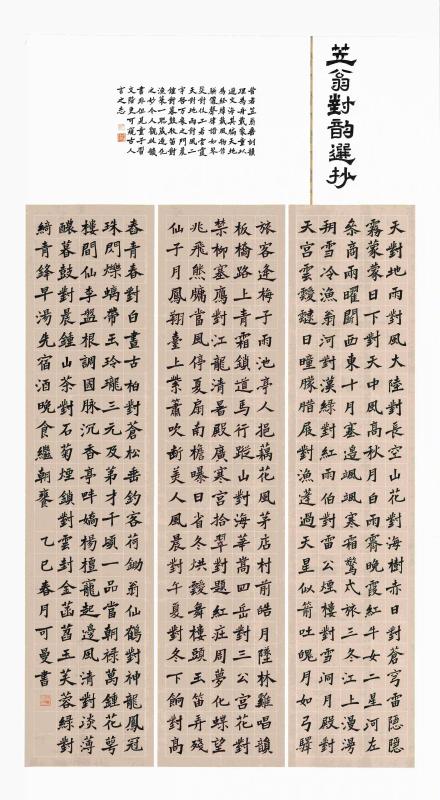 笠翁對韵選抄
昔者笠翁善刻韻
理為舟載家童以
遊文海其編天地
為經緯織風物作
駢儷聲律諧如琴
瑟對仗工若雲霞
天對地雨對風二
字啓萬象之門晨
鐘對暮鼓牧笛對
漁歌一聯蘊造化
之妙今人觀此韻
書非但見童子習
文階更可窺古人
言之志
天對地雨對風大陸對長空山花對海樹赤日對蒼穹雷隱隱
霧蒙蒙日下對天中風高秋月白雨霽晚霞紅牛女二星河左
叅商兩曜鬬西東十月塞邊颯颯寒霜驚戎旅三冬江上漫漫
朔雪冷漁翁河對漢綠對紅雨伯對雷公煙樓對雪洞月殿對
天宮雲靉靆日曈朦腊屐對漁蓬過天星似箭吐魄月如弓驛
旅客逢梅子雨池亭人挹藕花風茅店村前皓月墜林雞唱韻
板橋路上青霜鎖道馬行蹤山對海華對嵩四岳對三公宮花對
禁柳塞鴈對江龍清暑殿廣寒宮拾翠對題紅莊周夢化蝶望
兆飛熊牖當風停夏扇南檐曝日省冬烘舞樓頭玉笛弄殘
仙子月鳳翔臺上紫簫吹斷美人風晨對午夏對冬下餉對高
舂青春對白晝古柏對蒼松垂釣客荷鋤翁仙鶴對神龍鳳冠
珠閃爍螭帶玉玲瓏三元及第才千頃一品當朝祿萬鍾花萼
樓間仙李盤根調國脉沉香亭畔嬌楊擅寵起邊風清對淡薄
醲暮鼓對晨鍾山茶對石菊煙鎖對雲封金菡萏玉芙蓉綠對
綺青鋒早湯先宿酒晚食繼朝饔 乙巳春月可曼書